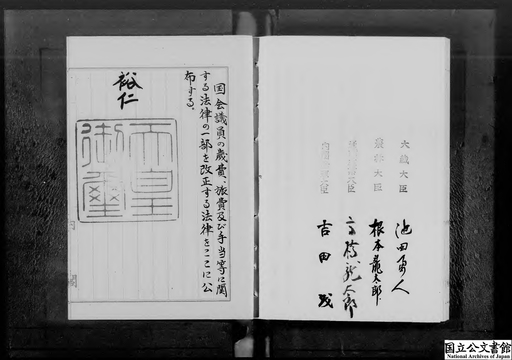 国会議員の歳費、旅費及び手当等に関
する法律の一部を改正する法律をここに公
布する。
裕仁
天皇
御璽
大蔵大臣 池田勇人
農林大臣 根本龍太郎
大臣 高橋龍太郎
内閣総理大臣 吉田茂
国立公文書館
National Archives of Japan